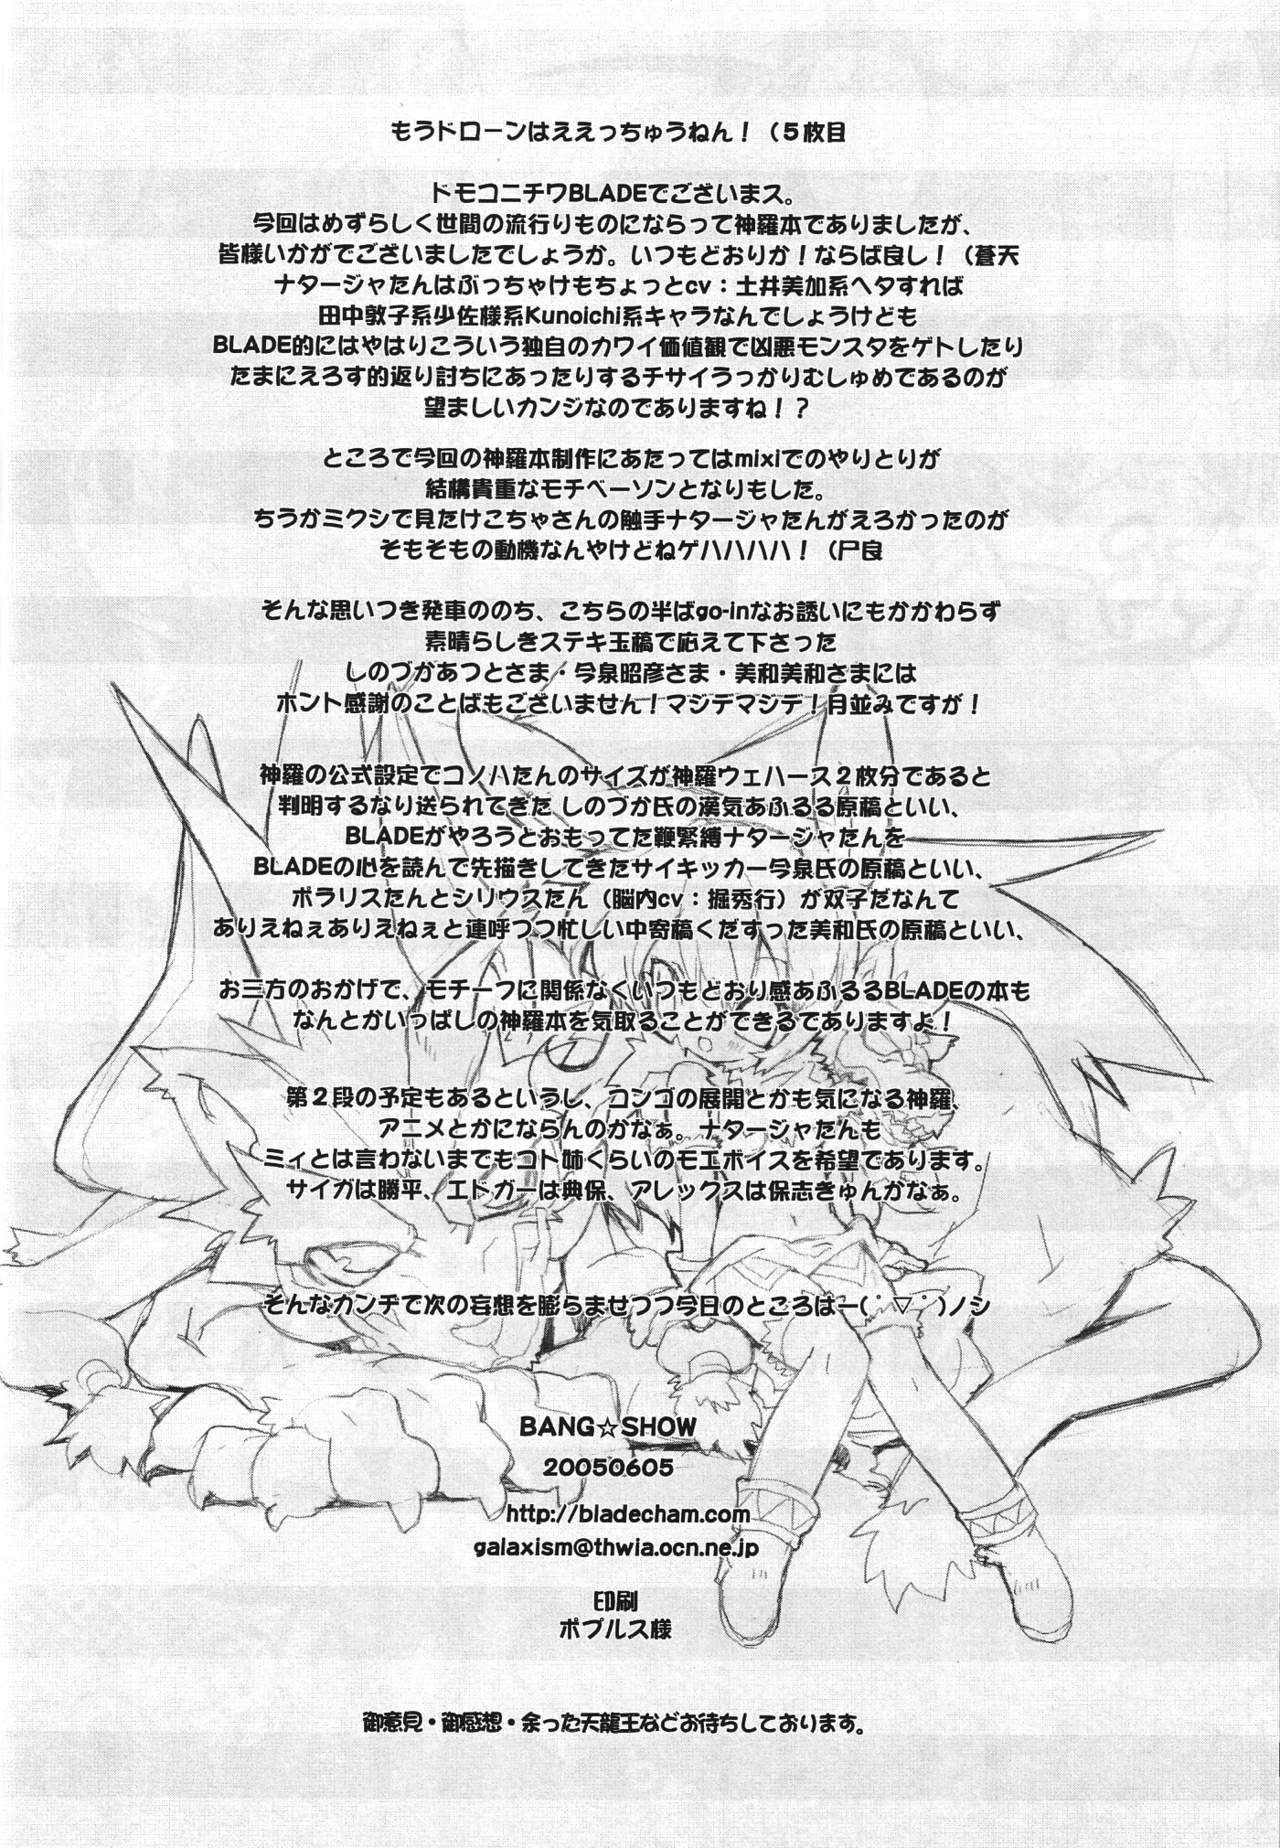 もうドローンはええっちゅうねん！（５枚目
ドモコニチワBLADEでございまス。
今回はめずらしく世間の流行りものにならって神羅本でありましたが、
皆様いかがでございましたでしょうか。いつもどおりか！ならば良し！（蒼天
ナタージャたんはぶっちゃけもちょっとcv：土井美加系ヘタすれば
田中敦子系少佐様系Kunoichi系キャラなんでしょうけども
BLADE的にはやはりこういう独自のカワイ価値観で凶悪モンスタをゲトしたり
たまにえろす的返り討ちにあったりするチサイうっかりむしゅめであるのが
望ましいカンジなのでありますね！？
ところで今回の神羅本制作にあたってはmixiでのやりとりが
結構貴重なモチベーソンとなりもした。
ちうかミクシで見たけこちゃさんの触手ナタージャたんがえろかったのが
そもそもの動機なんやけどねゲハハハハ！（尸良
そんな思いつき発車ののち、こちらの半ばgo-inなお誘いにもかかわらず
素晴らしきステキ玉稿で応えて下さった
しのづかあつとさま・今泉昭彦さま・美和美和さまには
ホント感謝のことばもございません！マジデマジデ！月並みですが！
神羅の公式設定でコノハたんのサイズが神羅ウェハース２枚分であると
判明するなり送られてきた しのづか氏の漢気あふるる原稿といい、
BLADEがやろうとおもってた鞭緊縛ナタージャたんを
BLADEの心を読んで先描きしてきたサイキッカー今泉氏の原稿といい、
ポラリスたんとシリウスたん（脳内cv：掘秀行）が双子だなんて
ありえねぇありえねぇと連呼つつ忙しい中寄稿くだすった美和氏の原稿といい、
お三方のおかげで、モチーフに関係なくいつもどおり感あふるるBLADEの本も
なんとかいっぱしの神羅本を気取ることができるでありますよ！
第２段の予定もあるというし、コンゴの展開とかも気になる神羅、
アニメとかにならんのかなぁ。ナタージャたんも
ミィとは言わないまでもコト姉くらいのモエボイスを希望であります。
サイガは勝平、エドガーは典保、アレックスは保志きゅんかなぁ。
そんなカンヂで次の妄想を膨らませつつ今日のところはー(˙▽˙)ノシ
BANG☆SHOW
20050605
http://bladecham.com
galaxism@thwia.ocn.ne.jp
印刷
ポプルス様
御意見・御感想・余った天龍王などお待ちしております。